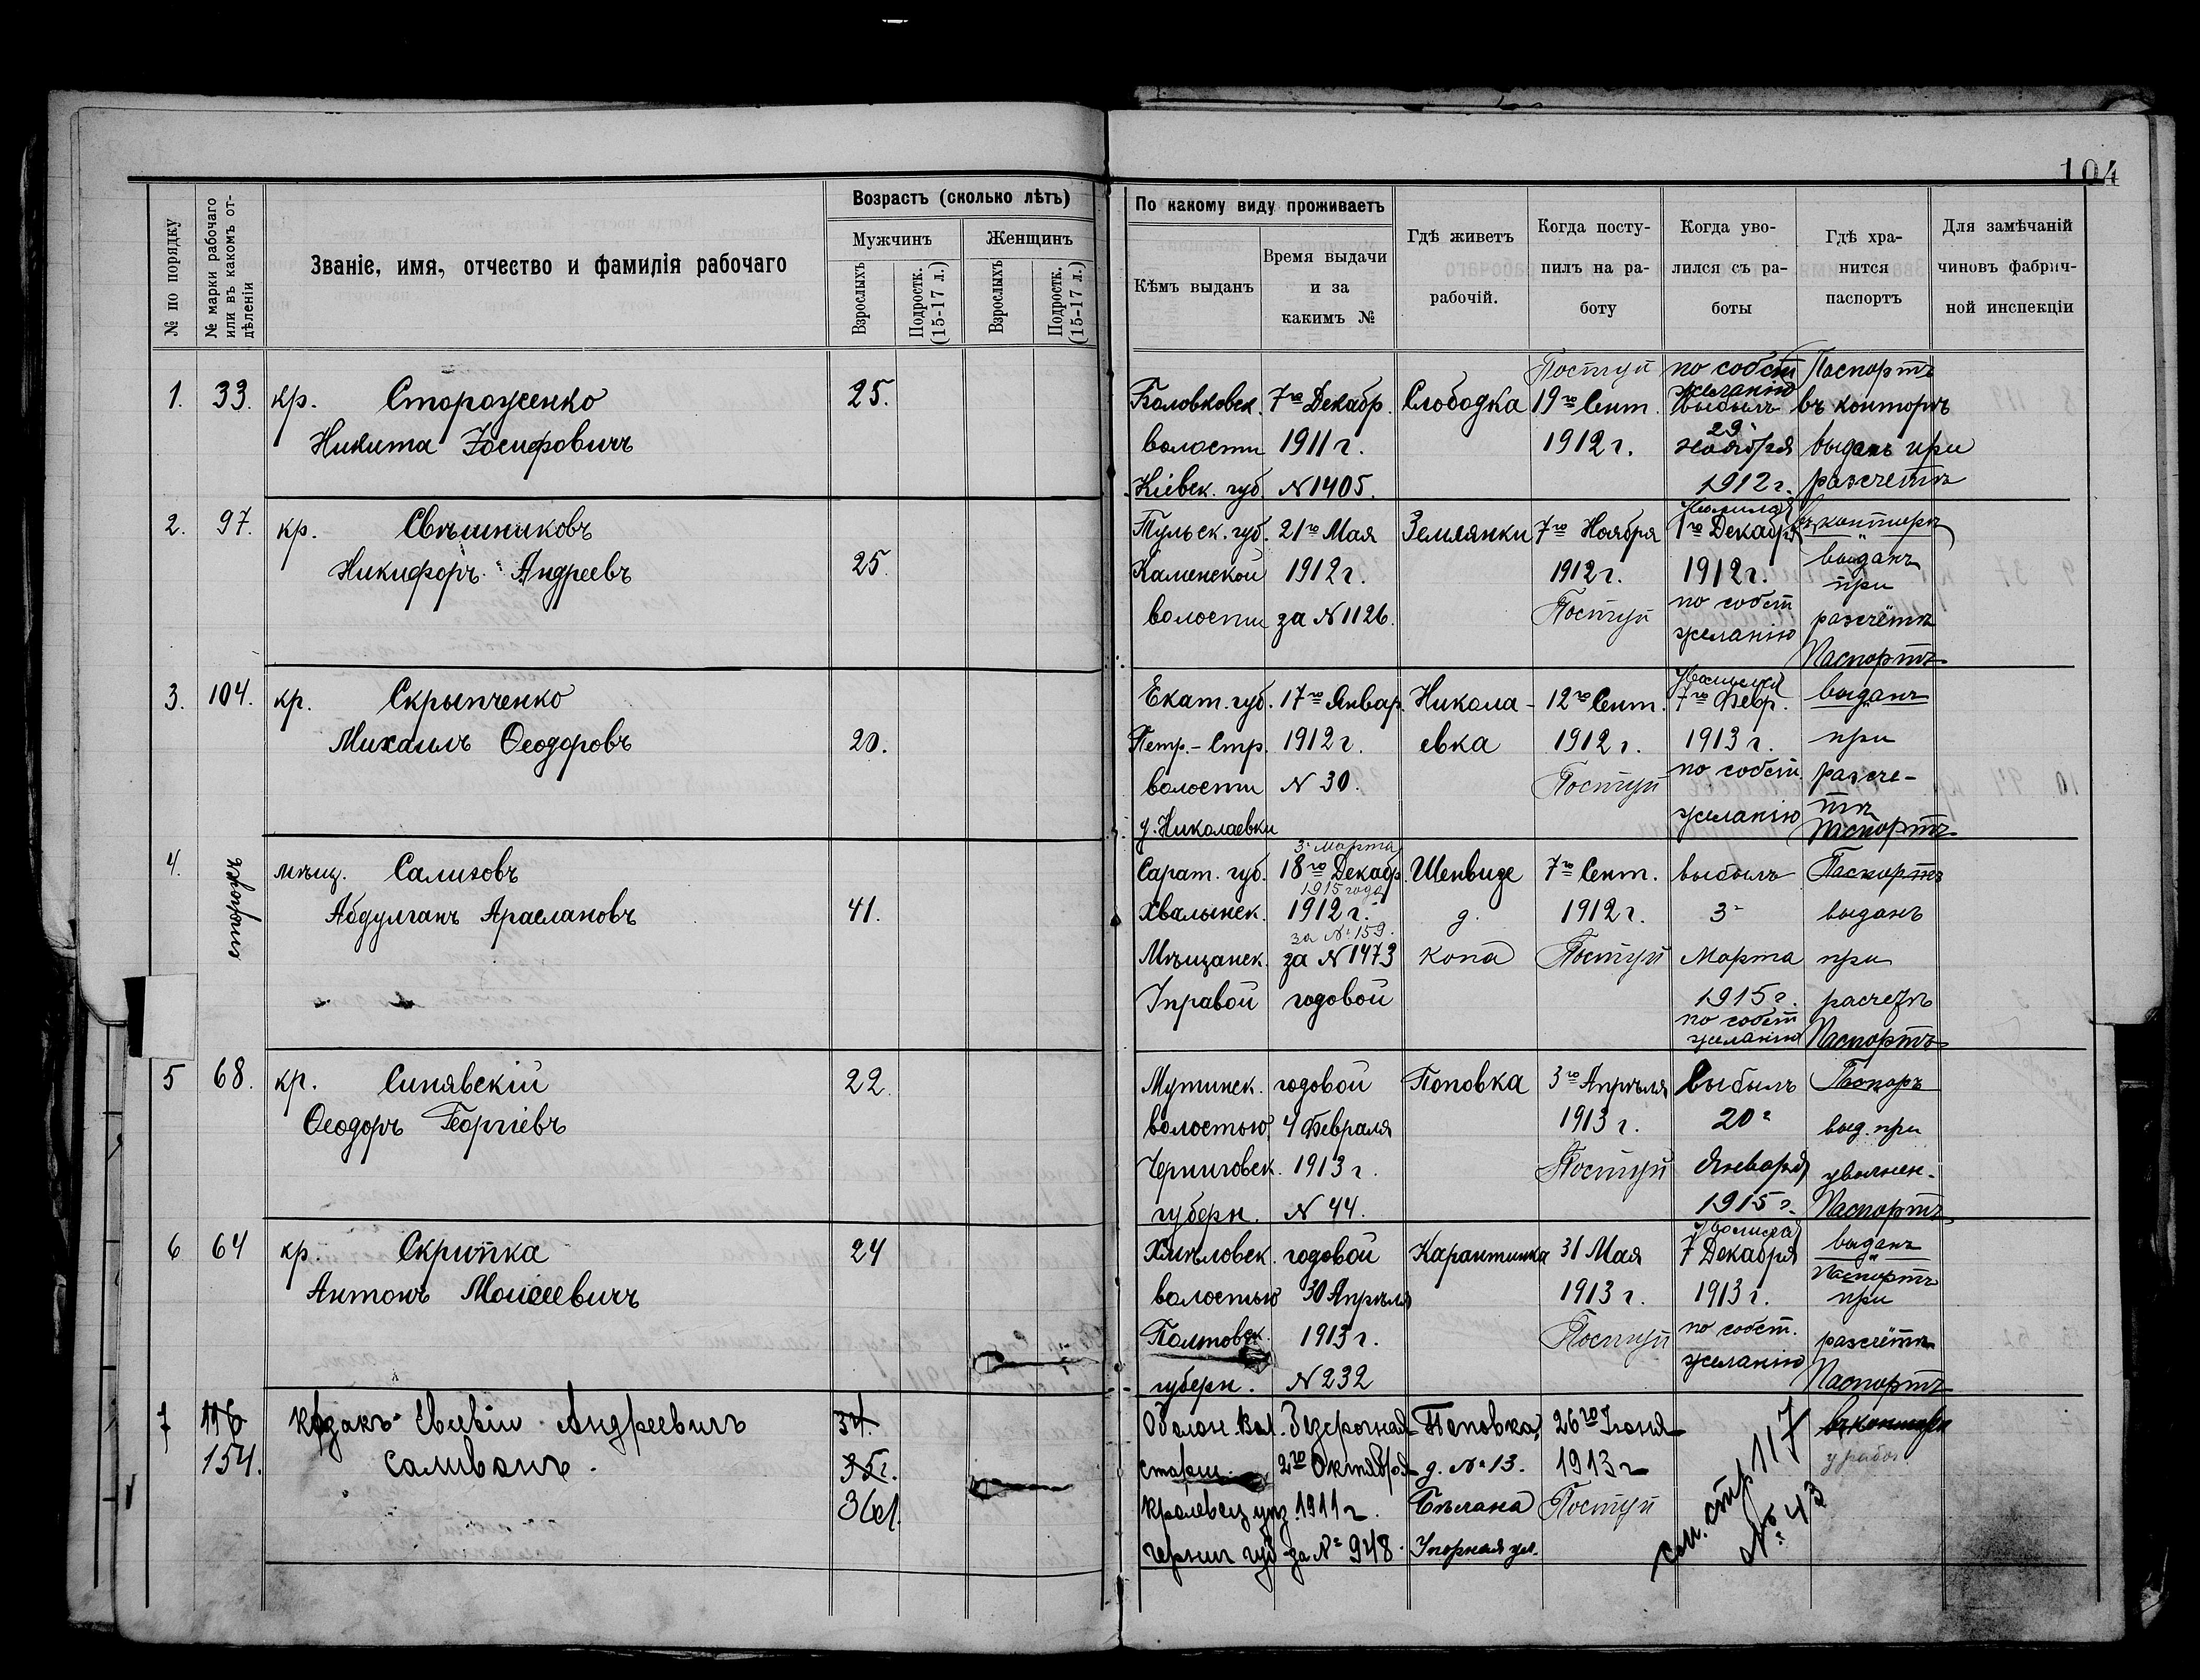 104
№ по порядку
№ марки рабочаго или въ какомъ отдѣленіи
Званіе, имя, отчество и фамилія рабочаго
Возрастъ (сколько лѣтъ)
Мужчинъ
Женщинъ
Взрослыхъ
Подростк. (15-17 л.)
Взрослыхъ
Подростк. (15-17 л.)
По какому виду проживаетъ
Кѣмъ выданъ
Время выдачи и за какимъ №
Гдѣ живетъ рабочій.
Когда поступилъ на работу
Когда уволился съ работы
Гдѣ хранится паспортъ
Для замѣчаній чиновъ фабричной инспекціи
1. 33. кр. Стороженко
Никита Іосифовичъ
25.
волости
Кіевск. губ.
7го Декабр.
1911 г.
N 1405.
Слободка
Поступ
19го Сент.
1912 г.
по собст
желанію
выбылъ
29
Ноября
1912 г.
Паспортъ
въ конторѣ
выданъ при
разсчетѣ
2. 97. кр. Свѣшниковъ
Никифоръ Андреевъ
25.
Тульск. губ.
Каменской
волости
21го Мая
1912 г.
за N 1126.
Землянки
7го Ноября
1912 г.
Поступ
1го Декабр
1912 г.
по собст
желанію
въ конторѣ
выданъ
при
разсчётѣ
Паспортъ
3. 104. кр. Скрыпченко
Михаилъ Ѳеодоровъ
20.
Екат. губ.
Петр.-Стр.
волости
д. Николаевки
17го Январ.
1912 г.
N 30.
Никола-
евка
12го Сент.
1912 г.
Поступ
Уволился
7го Февр.
1913 г.
по собст.
желанію
выданъ
при
разсче-
тѣ
Паспортъ
4. сторожъ
мѣщ. Салиховъ
Абдулганъ Араслановъ
41.
Сарат. губ.
Хвалынск.
Мѣщанск.
Управой
3го Марта
18го Декабр.
1915 года
1912 г.
за № 159.
за N 1473
годовой
д.
копа
7го Сент.
1912 г.
Поступ
выбылъ
3го
Марта
1915 г.
по собст
желанію
Паспортъ
выданъ
при
расчетѣ
Паспортъ
5 68. кр. Синявскій
Ѳеодоръ Георгіевъ
22.
Мутинск.
волостью,
Черниговск.
губерн.
годовой
4 Февраля
1913 г.
N 44.
Поповка
3го Апрѣля
1913 г.
Поступ
Выбылъ
20го
Января
1915 г.
выд. при
уволнен.
Паспортъ
6 64 кр. Скрипка
Антонъ Моисеевичъ
24
Хмѣловск.
волостью
Полтовск.
губерн.
годовой
30 Апрѣля
1913 г.
N 232
Карантинка
31 Мая
1913 г.
Поступ
Уволился
7 Декабря
1913 г.
по собст.
желанію
выданъ
Паспортъ
при
разсчётѣ
Паспортъ
7 116
154.
козакъ Евсевій Андреевичъ
Саливонъ.
34.
35г.
36л.
Оболон. Вол.
старш.
Кролевец. уѣз.
Черниг губ
Безсрочная
2го Октября
1911 г.
за № 948.
Поповка,
д. № 13.
Упорная ул.
26го Іюня
1913 г
Поступ
см. стр 117
№ 43
въ конторѣ